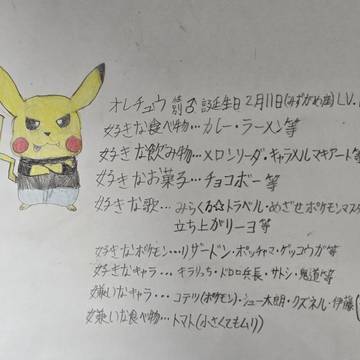 オレチュウ 性別♂ 誕生日 2月11日(みずがめ座) LV.
好きな食べ物…カレー・ラーメン等
好きな飲み物…メロンソーダ・キャラメルマキアート等
好きなお菓子…チョコボー等
好きな歌…みらくる☆トラベル・めざせポケモンマスタ
立ち上がリーヨ等
好きなポケモン…リザードン・ポッチャマ・ゲッコウガ等
好きなキャラ…キラリっち・ドロロ兵長・サトシ・鬼道等
嫌いなキャラ…コテツ(ポケモン)・シュー太朗・クズネル・伊藤(
嫌いな食べ物…トマト(小さくてもムリ)